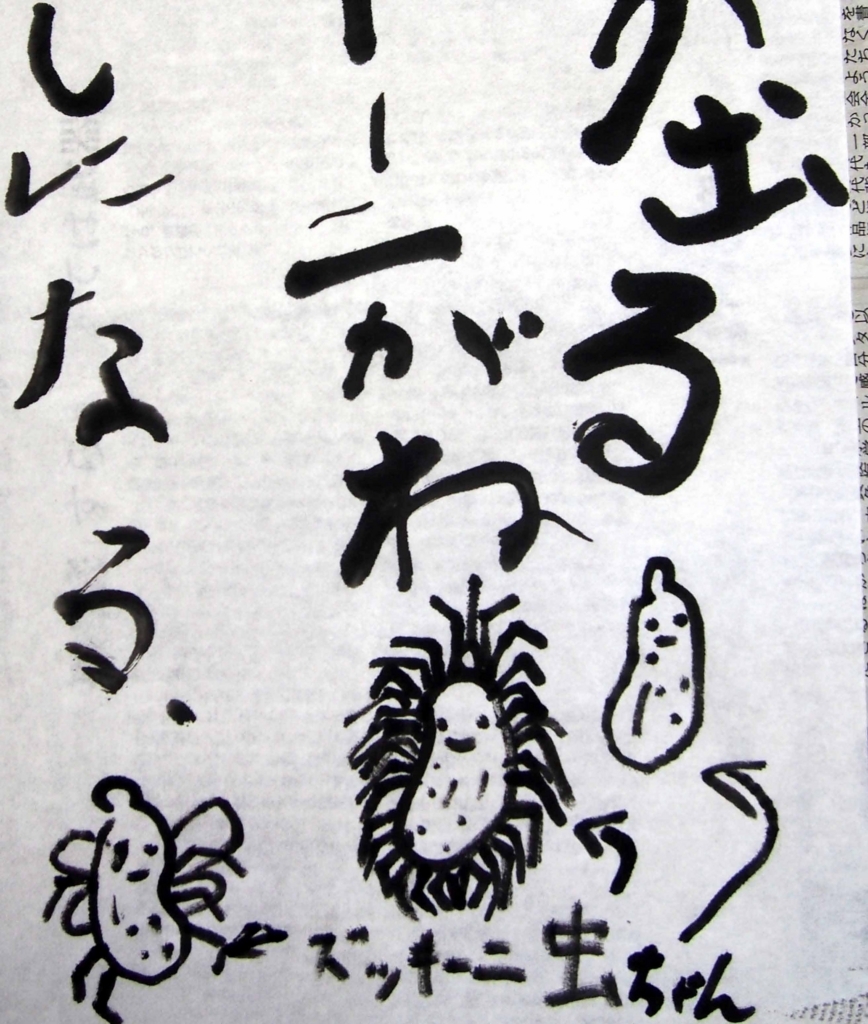 が出る
ーニがね
しになる、
ズッキーニ虫ちゃん